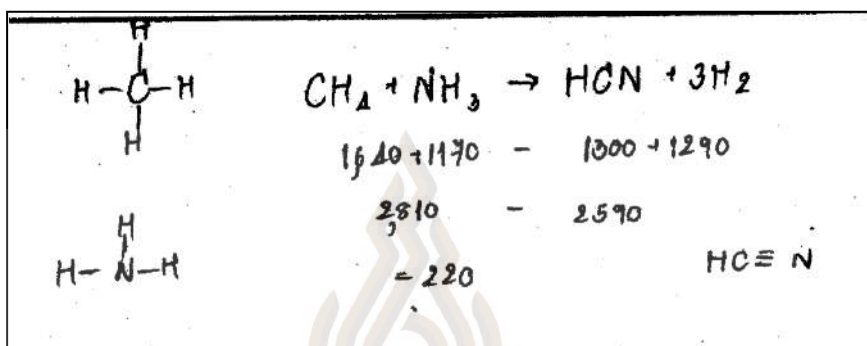 H
H-C-H
H
CH4 + NH3 → HCN + 3H2
1640+1170 - 1300+1290
2810 - 2590
= 220
H
H-N-H
HC≡N